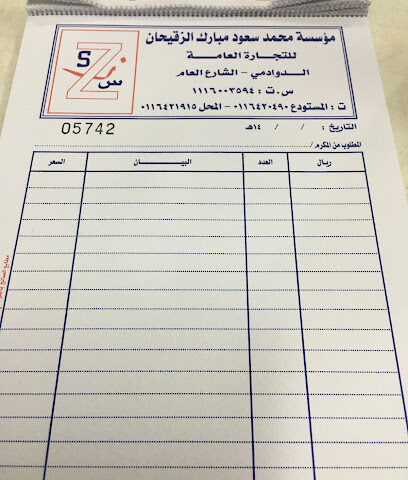 مؤسسة محمد سعود مبارك الزقيحان
للتجارة العامة
الدوادمي - الشارع العام
س.ت : ١١١٦٠٠٣٥٩٤
ت : المستودع ٠١١٦٤٢٠٤٩٠ - المحل ٠١١٦٤٢١٩١٥
S
Z
س
التاريخ : / / ١٤هـ
05742
المطلوب من المكرم /
ريال العدد البيـــان السعر